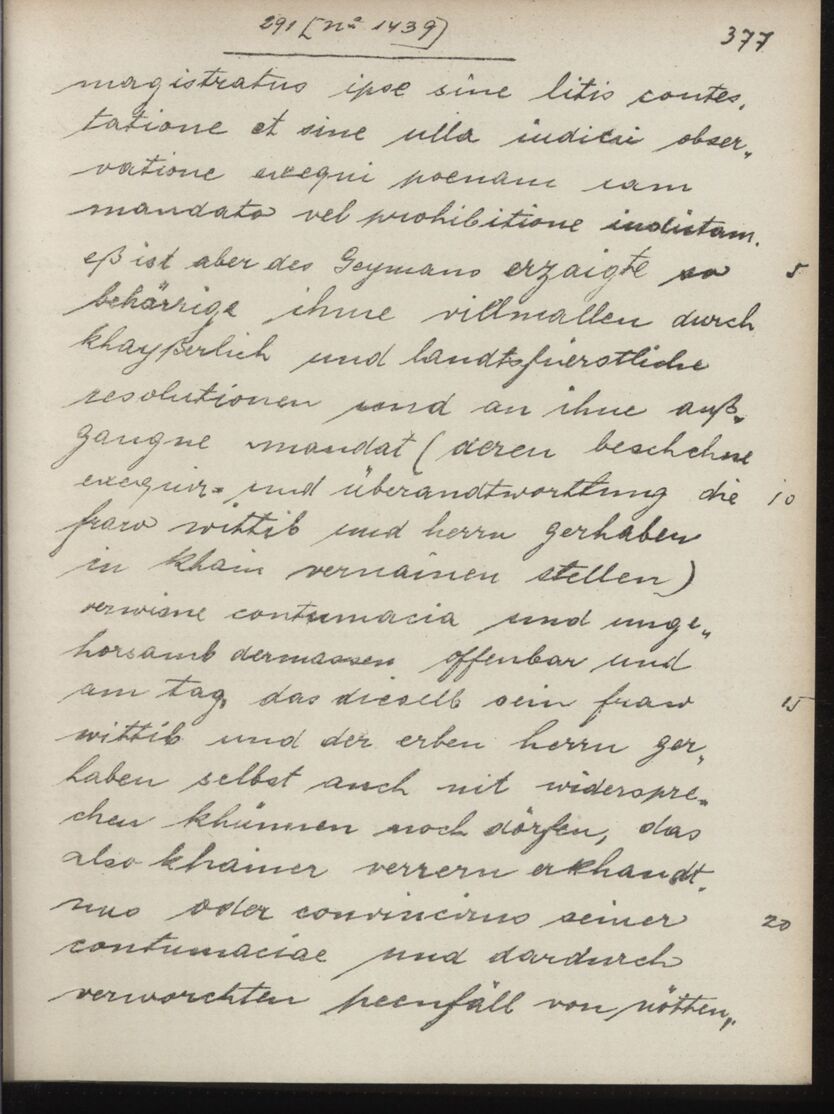 291 [nº 1439]
377
magistratus ipse sine litis contes„
tatione et sine ulla iudicii obser„
vatione exequi poenam iam
mandato vel prohibitione indictam.
eß ist aber des Geymans erzaigte so 5
behärrige ihme villmallen durch
khayßerlich und landtsfürstliche
resolutionen und an ihne auß„
gangne mandat (deren beschehne
exequir= und überandtworttung die 10
fraw wittib und herrn gerhaben
in khain vernainen stellen)
erwisne contumacia und unge„
horsamb dermassen offenbar und
am tag, das dieselb sein fraw 15
wittib und der erben herrn ger„
haben selbst auch nit widerspre„
chen khünnen noch dörfen, das
also khainer verrern erkhandt„
nus oder convincirns seiner 20
contumaciae und dardurch
verworchten peenfäll von nötten„